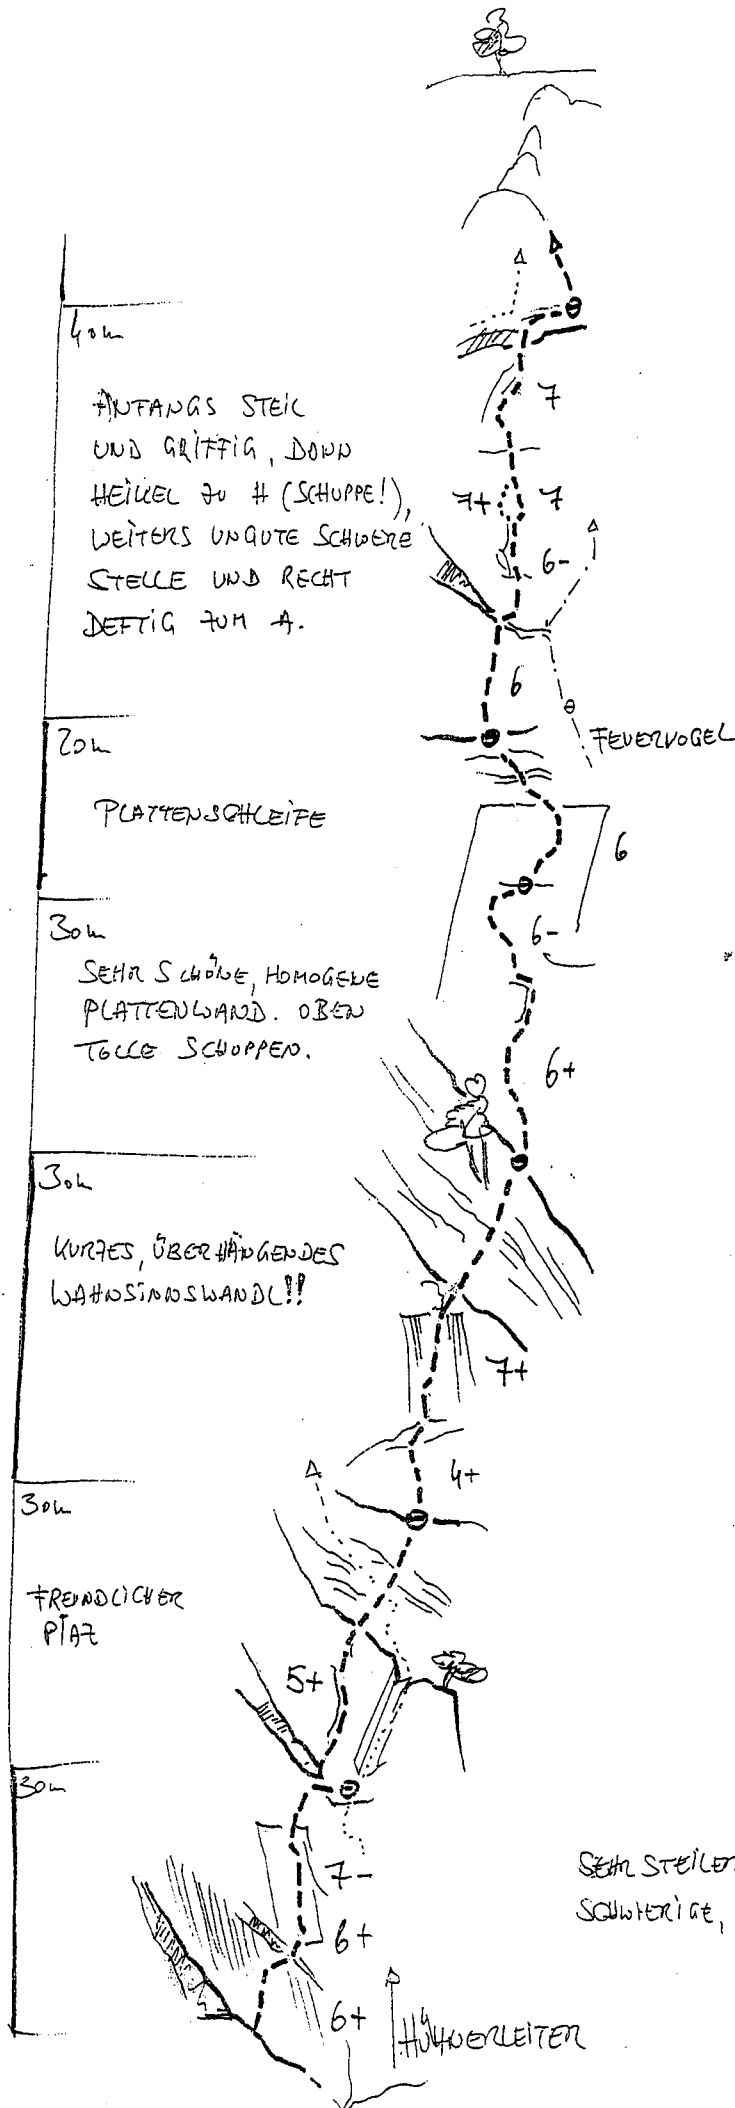 40m
ANFANGS STEIL
UND GRIFFIG, DANN
HEIKEL ZU H (SCHUPPE!),
WEITERS UNGUTE SCHWERE
STELLE UND RECHT
DEFTIG ZUM A.
7
7+ 7
6-
6
FEUERVOGEL
20m
PLATTENSCHLEIFE
6
30m
6-
SEHR SCHÖNE, HOMOGENE
PLATTENWAND. OBEN
TOLLE SCHUPPEN.
6+
30m
KURZES, ÜBERHÄNGENDES
WAHNSINNSWANDL!!
7+
4+
30m
FREUNDLICHER
PIAZ
5+
30m
7-
SEHR STEILER
SCHWIERIGE,
6+
6+
HÜHNERLEITER